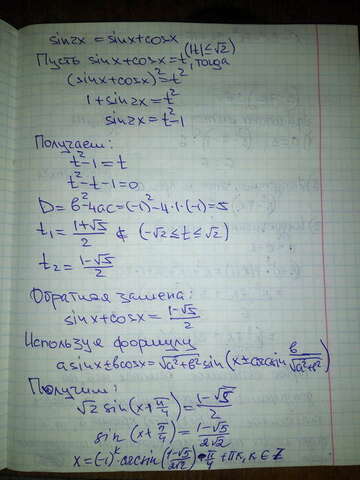 sin2x = sinx+cosx
Пусть sinx+cosx=t (|t|≤√2), тогда
(sinx+cosx)²=t²
1+sin2x=t²
sin2x=t²-1
Получаем:
t²-1=t
t²-t-1=0
D=b²-4ac=(-1)²-4·1·(-1)=5
t₁=(1+√5)/2 ∉ (-√2≤t≤√2)
t₂=(1-√5)/2
Обратная замена:
sinx+cosx=(1-√5)/2
Используя формулу
asinx±bcosx=√(a²+b²)sin(x±arcsin b/√(a²+b²))
Получим:
√2 sin(x+π/4)=(1-√5)/2
sin(x+π/4)=(1-√5)/(2√2)
x=(-1)ᵏ·arcsin((1-√5)/(2√2))-π/4+πk, k∈Z